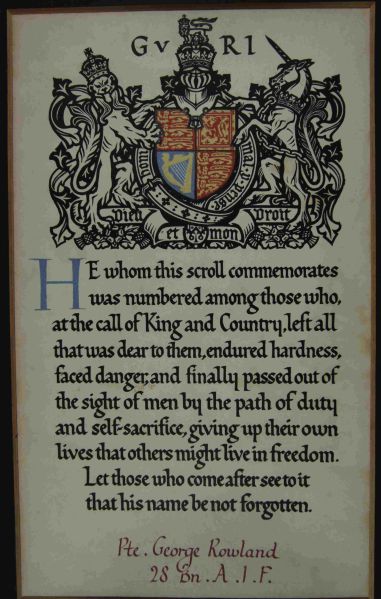 GvRI
Dieu et mon Droit
HE whom this scroll commemorates
was numbered among those who,
at the call of King and Country, left all
that was dear to them, endured hardness,
faced danger, and finally passed out of
the sight of men by the path of duty
and self-sacrifice, giving up their own
lives that others might live in freedom.
Let those who come after see to it
that his name be not forgotten.
Pte. George Rowland
28 Bn. A.I.F.